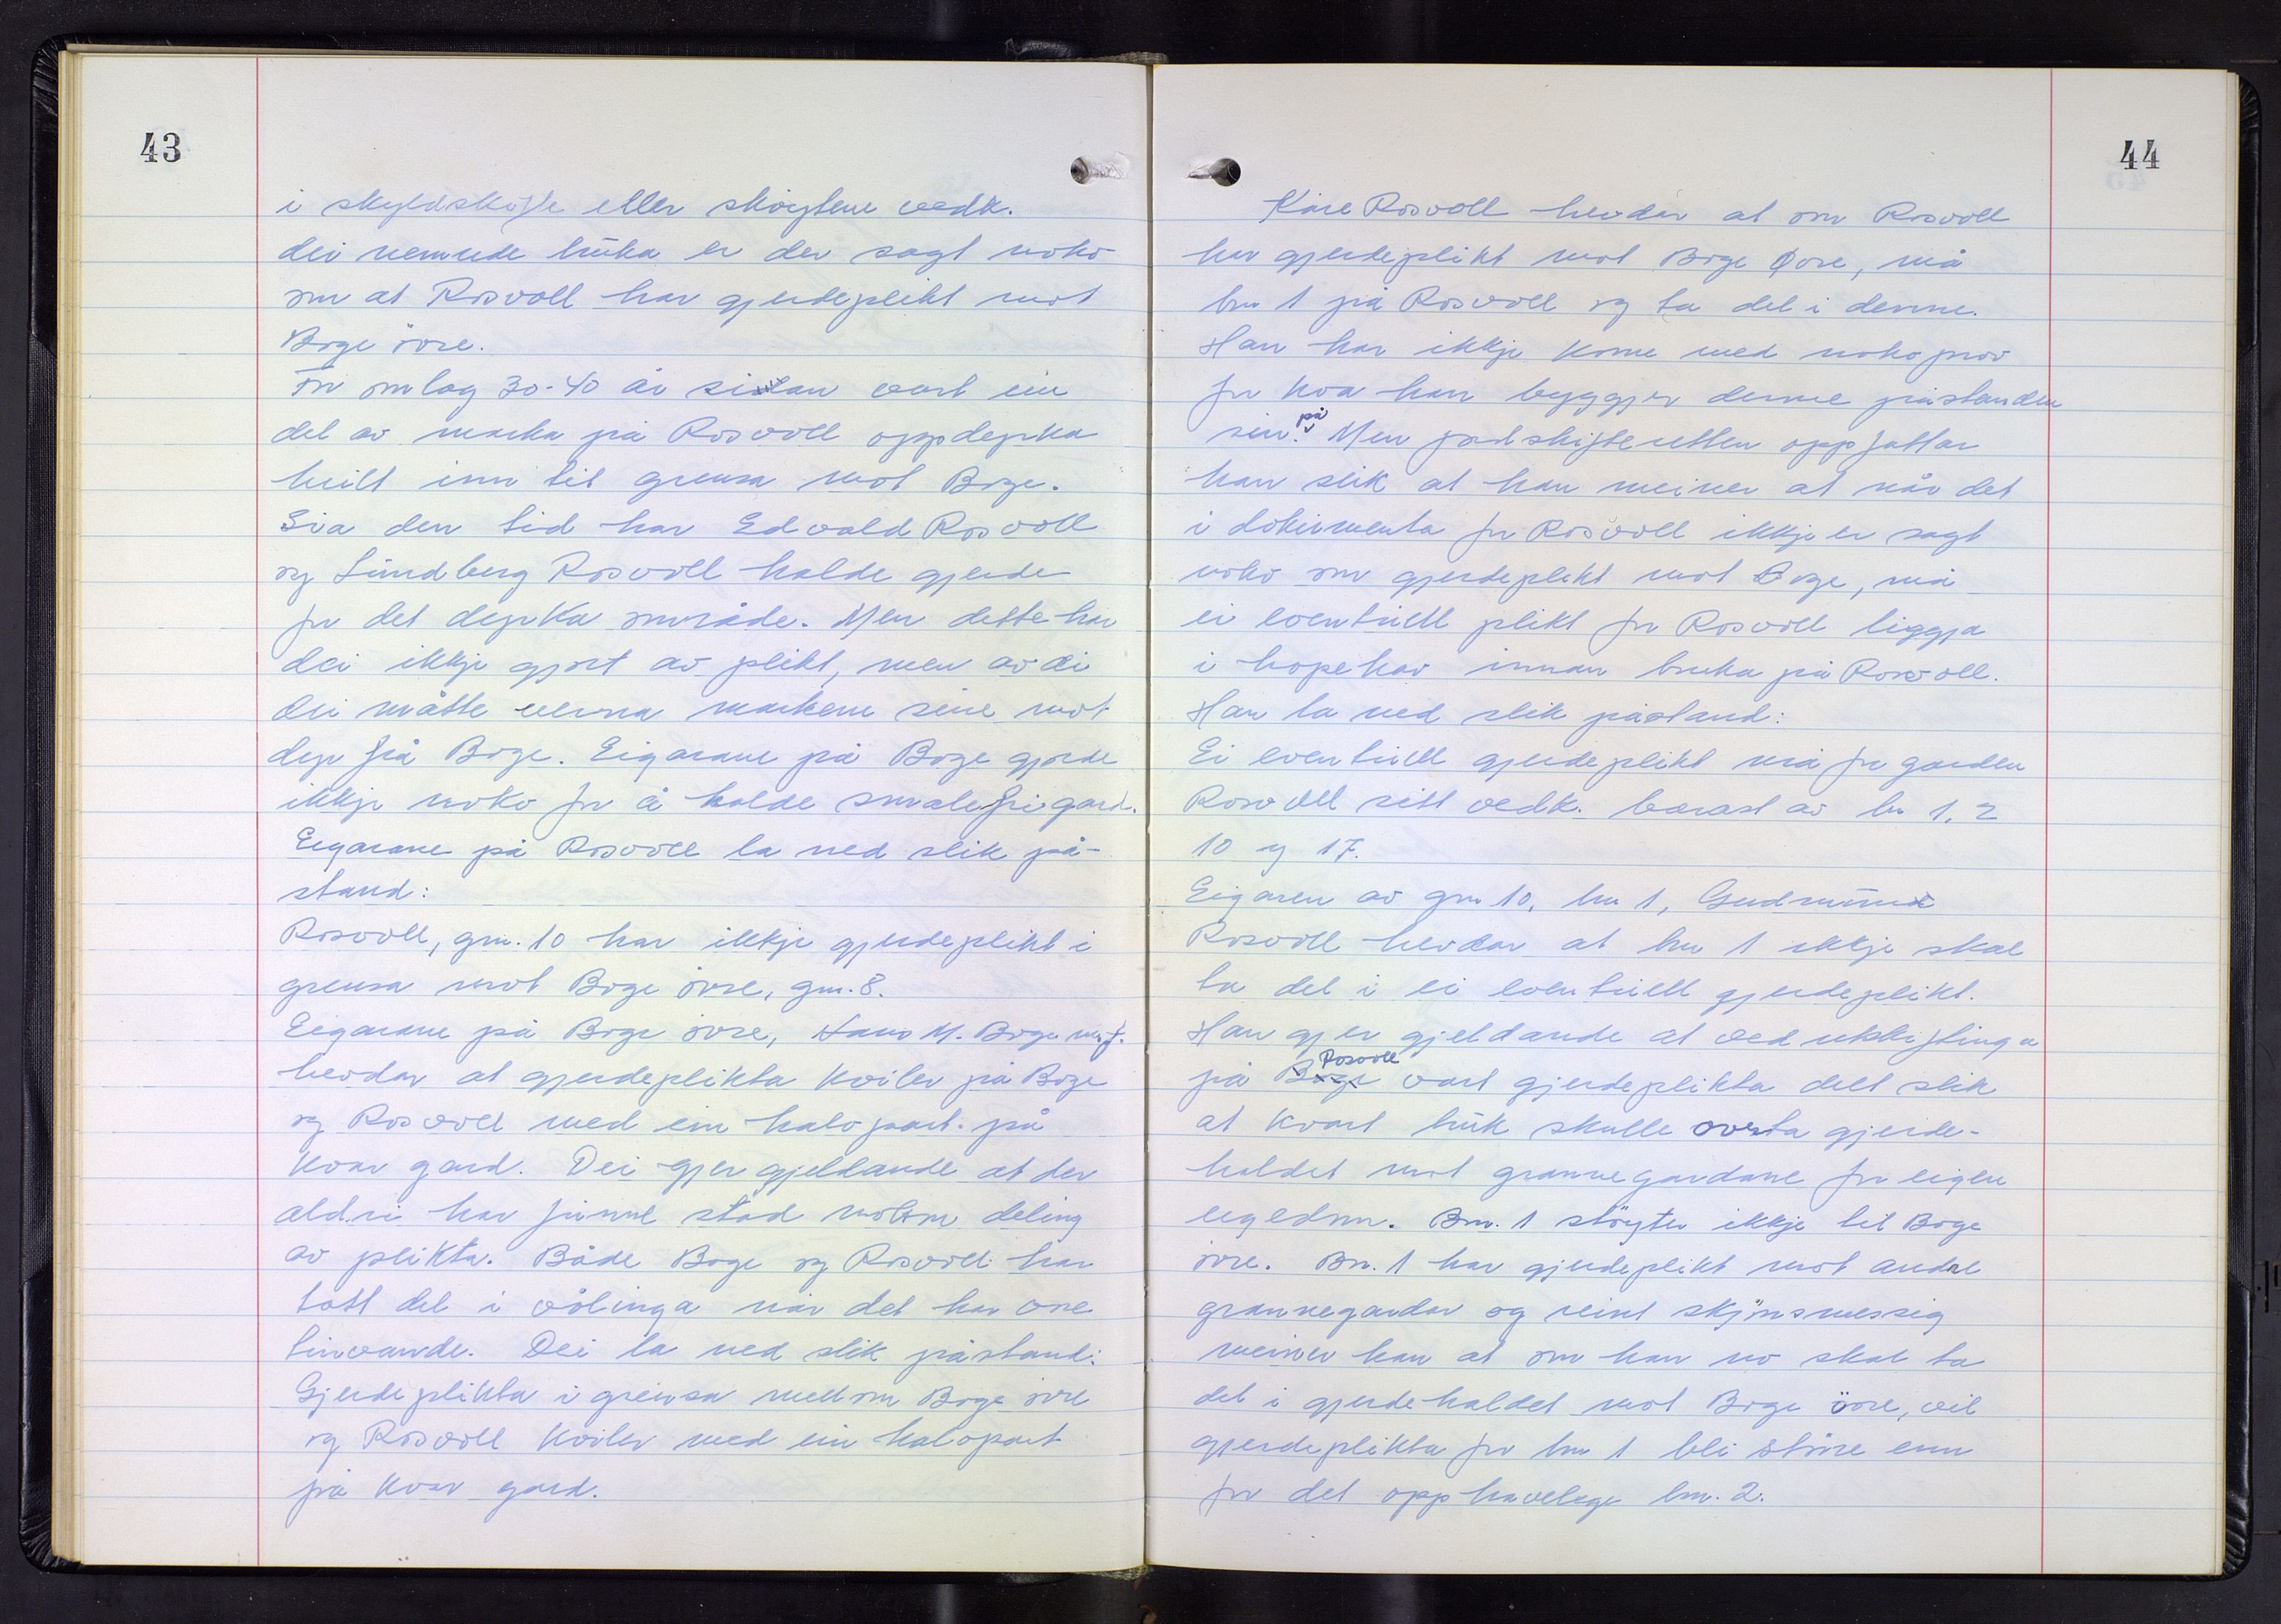 43
i skyldskifte eller skøytene vedk.
dei nemnde bruka er der sagt noko
om at Rosvoll har gjerdeplikt mot
Boge övre.
For omlag 30-40 år sidan vart ein
del av marka på Rosvoll oppdyrka
heilt inn til grensa mot Boge.
Sia den tid har Edvald Rosvoll
og Lundberg Rosvoll halde gjerde
for det dyrka område. Men dette har
dei ikkje gjort av plikt, men av di
dei måtte verna markene sine mot
dyr frå Boge. Eigarane på Boge gjorde
ikkje noko for å halde smalefri gard.
Eigarane på Rosvoll la ned slik på-
stand:
Rosvoll, gnr. 10 har ikkje gjerdeplikt i
grensa mot Boge övre, gnr. 8.
Eigarane på Boge övre, Hans M. Boge m.f.
hevdar at gjerdeplikta kviler på Boge
og Rosvoll med ein halvpart på
kvar gard. Dei gjer gjeldande at der
aldri har funne stad nokon deling
av plikta. Både Boge og Rosvoll har
tatt del i völinga når det har vore
turvande. Dei la ned slik påstand:
Gjerdeplikta i grensa mellom Boge övre
og Rosvoll kviler med ein halvpart
på kvar gard.
44
Kåre Rosvoll hevdar at om Rosvoll
har gjerdeplikt mot Boge Øvre, må
bnr 1 på Rosvoll og ta del i denne.
Han har ikkje kome med noko prov
for kva han byggjer denne påstanden
sin på. Men jordskifteretten oppfattar
han slik at han meiner at når det
i dokumenta for Rosvoll ikkje er sagt
noko om gjerdeplikt mot Boge, må
ei eventuell plikt for Rosvoll liggja
i hopehav innan bruka på Rosvoll.
Han la ned slik påstand:
Ei eventuell gjerdeplikt må for garden
Rosvoll sitt vedk. berast av bn 1, 2
10 og 17.
Eigaren av gnr 10, bnr 1, Gudmund
Rosvoll hevdar at bnr 1 ikkje skal
ta del i ei eventuell gjerdeplikt.
Han gjer gjeldande at ved utskiftinga
på Boge Rosvoll vart gjerdeplikta delt slik
at kvart bruk skulle overta gjerde-
haldet mot grannegardane for eigen
eigedom. Bnr. 1 stöyter ikkje til Boge
övre. Bnr. 1 har gjerdeplikt mot andre
grannegardar og reint skjönsmessig
meiner han at om han no skal ta
del i gjerdehaldet mot Boge övre, vil
gjerdeplikta for bnr 1 bli större enn
for det opphavelege bnr. 2.